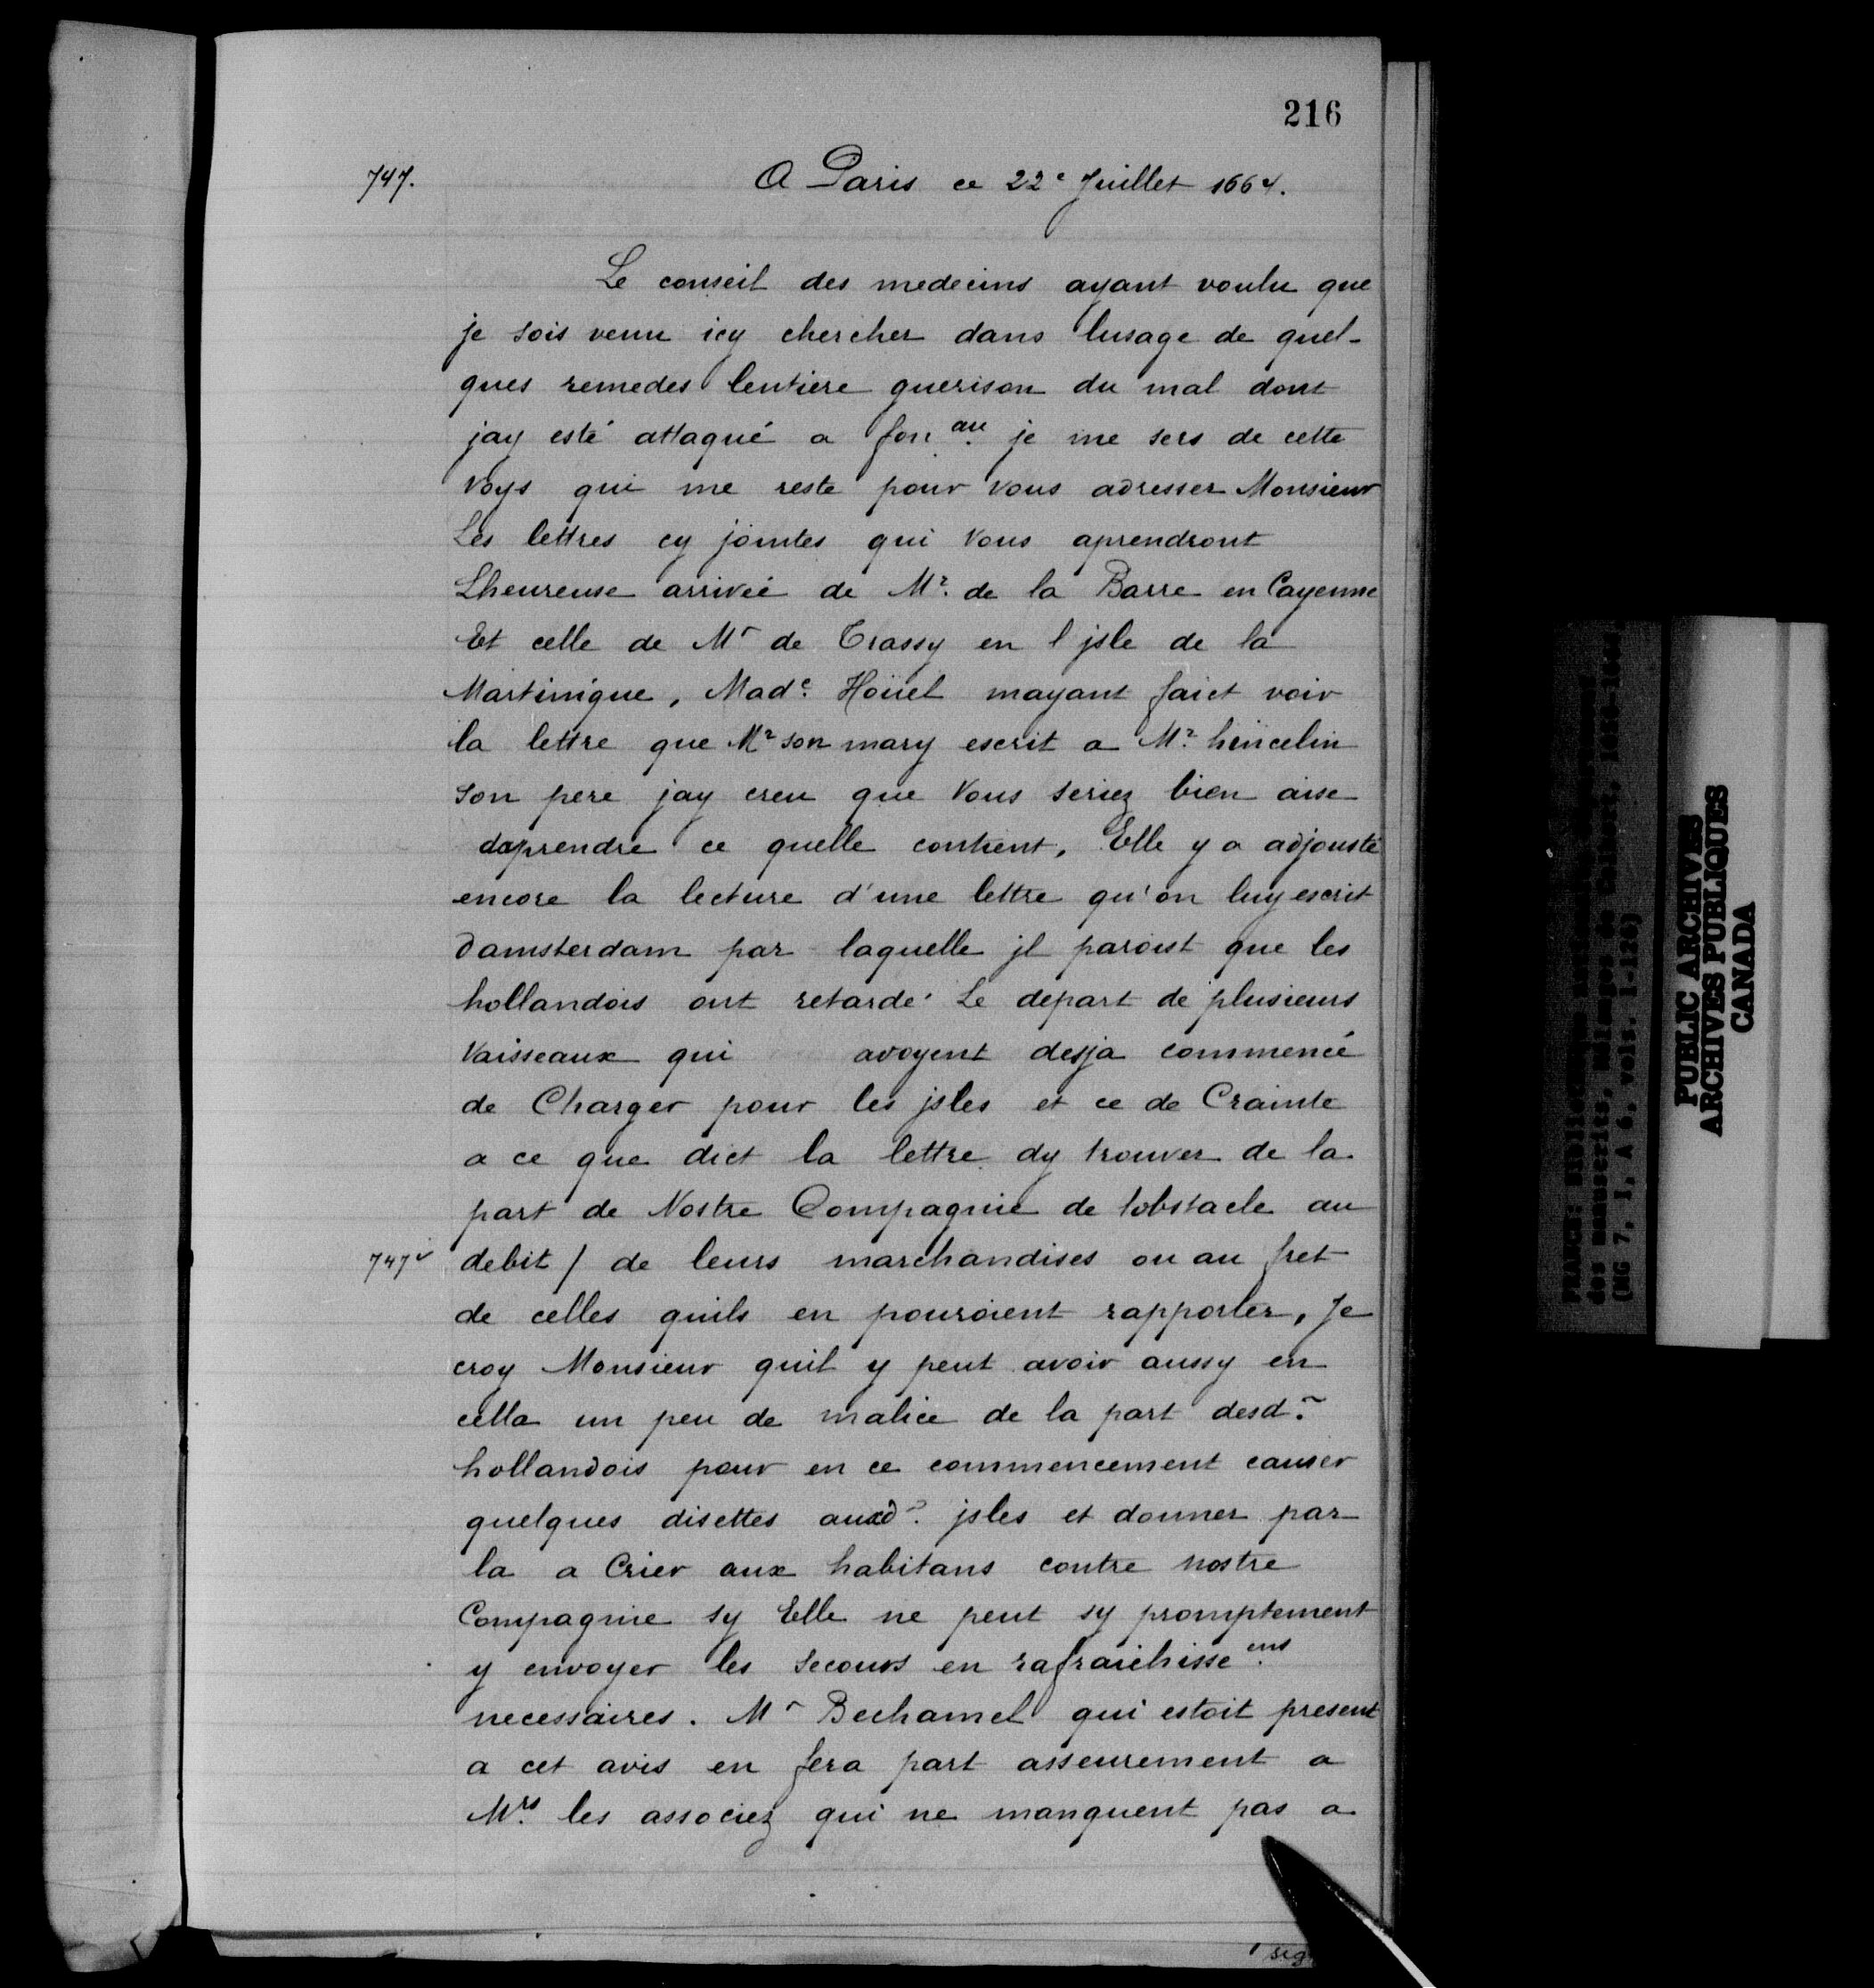 216
747.
A Paris ce 22e Juillet 1664.
Le conseil des medecins ayant voulu que
je sois venu icy chercher dans lusage de quel-
ques remedes lentiere guerison du mal dont
jay esté attaqué a fon.au je me sers de cette
voys qui me reste pour vous adresser Monsieur
Les lettres cy jointes qui vous aprendront
Lheureuse arrivée de Mr. de la Barre en Cayenne
Et celle de Mr de Trassy en l jsle de la
Martinique, Made. Hoüel mayant faict voir
la lettre que Mr son mary escrit a Mr. hincelin
son pere jay creu que Vous seriez bien aise
daprendre ce quelle contient, Elle y a adjousté
encore la lecture d'une lettre qu'on luy escrit
damsterdam par laquelle jl paroist que les
hollandois ont retardé Le depart de plusieurs
Vaisseaux qui avoyent desja commencé
de Charger pour les jsles et ce de Crainte
a ce que dict la lettre dy trouver de la
part de Nostre Compagnie de lobstacle au
747v debit / de leurs marchandises ou au fret
de celles quils en pouroient rapporter, Je
croy Monsieur quil y peut avoir aussy en
cella un peu de malice de la part desd.
hollandois pour en ce commencement causer
quelques disettes auxd. jsles et donner par
la a Crier aux habitans contre nostre
Compagnie sy Elle ne peut sy promptement
y envoyer les secours en rafraichisse.ens
necessaires. Mr Bechamel qui estoit present
a cet avis en fera part asseurement a
Mrs. les associez qui ne manquent pas a
PUBLIC ARCHIVES
ARCHIVES PUBLIQUES
CANADA
(MG 7, I, A 6. vols. 1-126)